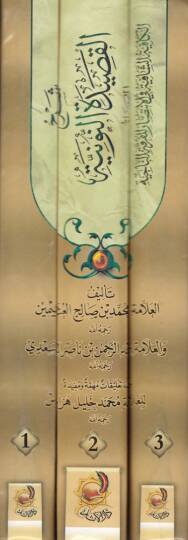 الكافية الشافية في الانتصار للفرقة الناجية
شرح
القصيدة النونية
تأليف
العلامة محمد بن صالح العثيمين
رحمه الله
والعلامة عبد الرحمن بن ناصر السعدي
رحمه الله
تعليقات مهمة ومفيدة
للعلامة محمد خليل هراس
رحمه الله
1
2
3